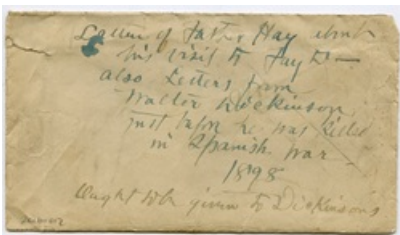 Letter of Father Hay about
his visit to Fay
also Letters from
Walter Dickinson
just before he was killed
in Spanish War
1898
Ought to be given to Dickinsons